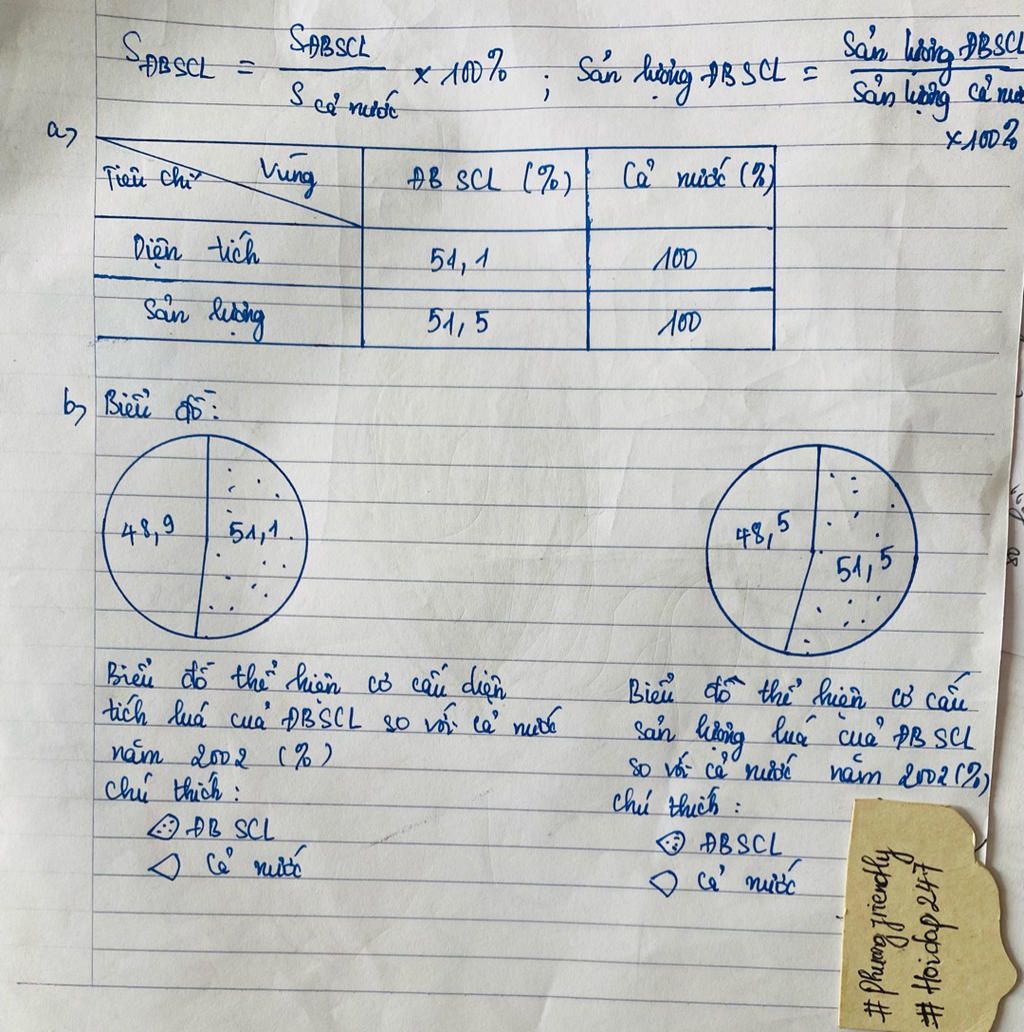 S ĐBSCL = S ĐBSCL / S cả nước × 100% ; Sản lượng ĐBSCL = Sản lượng ĐBSCL / Sản lượng cả nướ
×100%
a,
Tiêu chí Vùng ĐBSCL (%) Cả nước (%)
Diện tích 51,1 100
Sản lượng 51,5 100
b, Biểu đồ:
48,9 51,1
48,5 51,5
Biểu đồ thể hiện cơ cấu diện
tích luá cuả ĐBSCL so với cả nước
năm 2002 (%)
chú thích :
ĐBSCL
Cả nước
Biểu đồ thể hiện cơ cấu
sản lượng luá cuả ĐBSCL
so với cả nước năm 2002 (%)
chú thích :
ĐBSCL
Cả nước
#Phuongfriendly
#Hoidap247